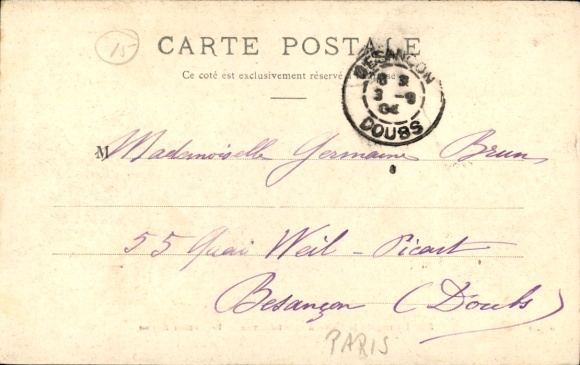 15
CARTE POSTALE
Ce coté est exclusivement réservé à
BESANÇON
3 -9
04
DOUBS
M Mademoiselle Germaine Brun
55 Quai Weil-Picart
Besançon (Doubs)
PARIS